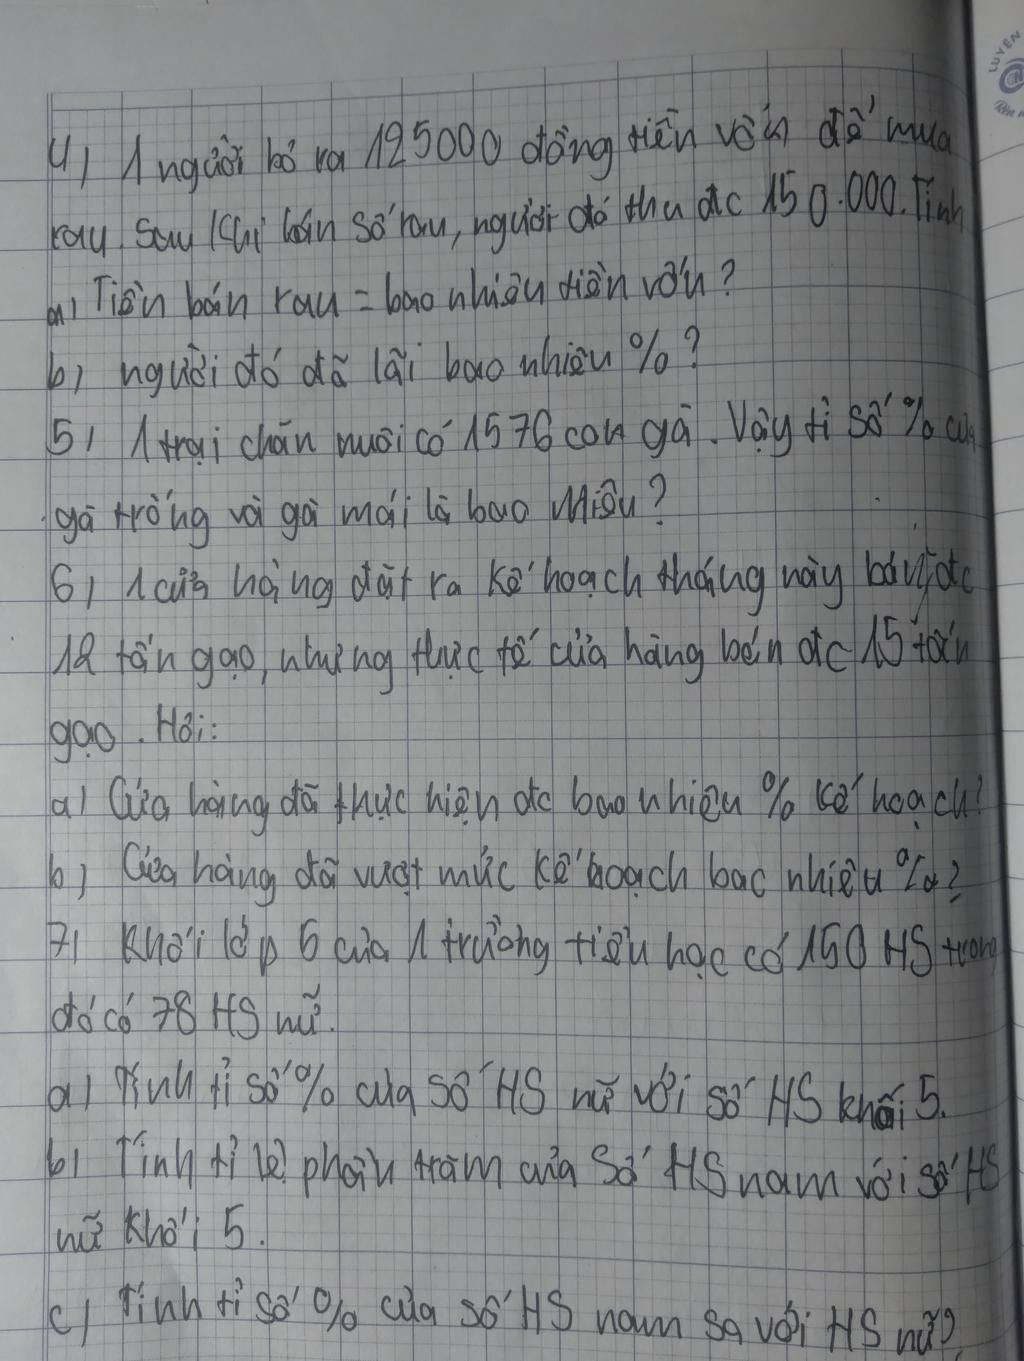 4) 1 người bỏ ra 125000 đồng tiền vốn để mua
rau. Sau khi bán số rau, người đó thu đc 150.000. Tính
a) Tiền bán rau = bao nhiêu tiền vốn?
b) người đó đã lãi bao nhiêu %?
5) 1 trại chăn nuôi có 1576 con gà. Vậy tỉ số % của
gà trống và gà mái là bao nhiêu?
6) 1 cửa hàng đặt ra kế hoạch tháng này bán đc
12 tấn gạo, nhưng thực tế cửa hàng bán đc 15 tấn
gạo. Hỏi:
a) Cửa hàng đã thực hiện đc bao nhiêu % kế hoạch?
b) Cửa hàng đã vượt mức kế hoạch bao nhiêu %?
7) Khối lớp 5 của 1 trường tiểu học có 150 HS trong
đó có 78 HS nữ.
a) Tính tỉ số % của số HS nữ với số HS khối 5.
b) Tính tỉ lệ phần trăm của số HS nam với số HS
nữ khối 5.
c) Tính tỉ số % của số HS nam so với HS nữ?
LUYỆN